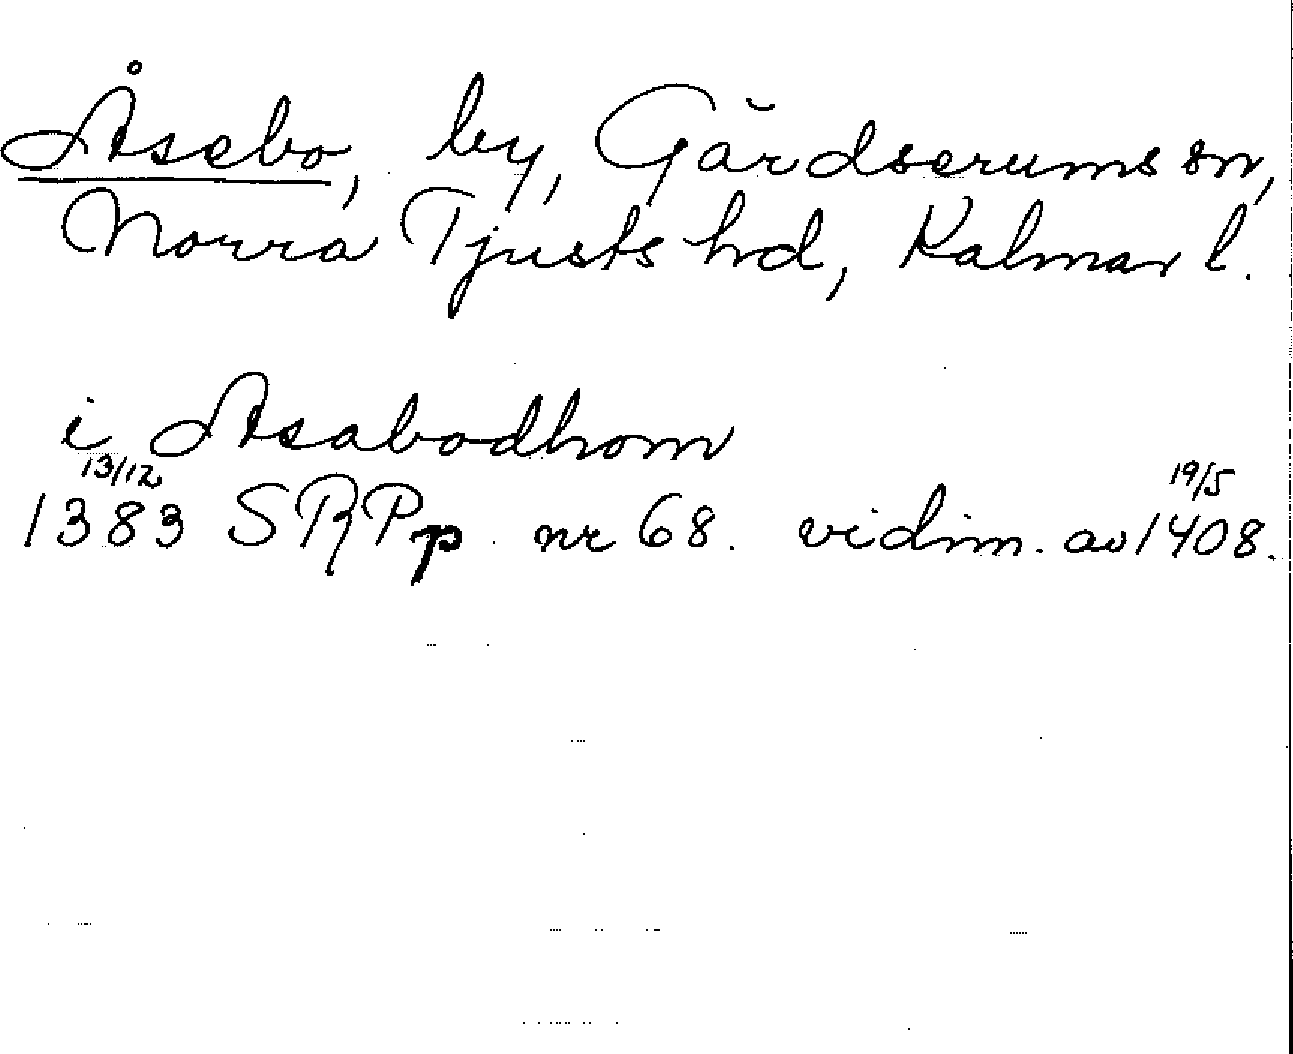 Åsebo, by, Gärdserums sn,
Norra Tjusts hd, Kalmar l.
i Asabodhom
13/12 19/5
1383 SRPp nr 68. vidim. av 1408.